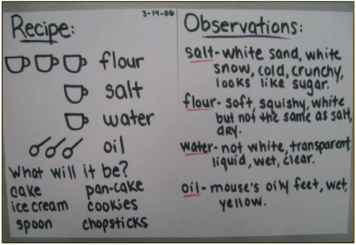 3-14-06
Recipe:
flour
salt
water
oil
What will it be?
cake pan-cake
ice cream cookies
spoon chopsticks
Observations:
salt- white sand, white
snow, cold, crunchy,
looks like sugar.
flour- soft, squishy, white
but not the same as salt,
dry.
water- not white, transparent,
liquid, wet, clear.
oil- mouse's oily feet, wet,
yellow.